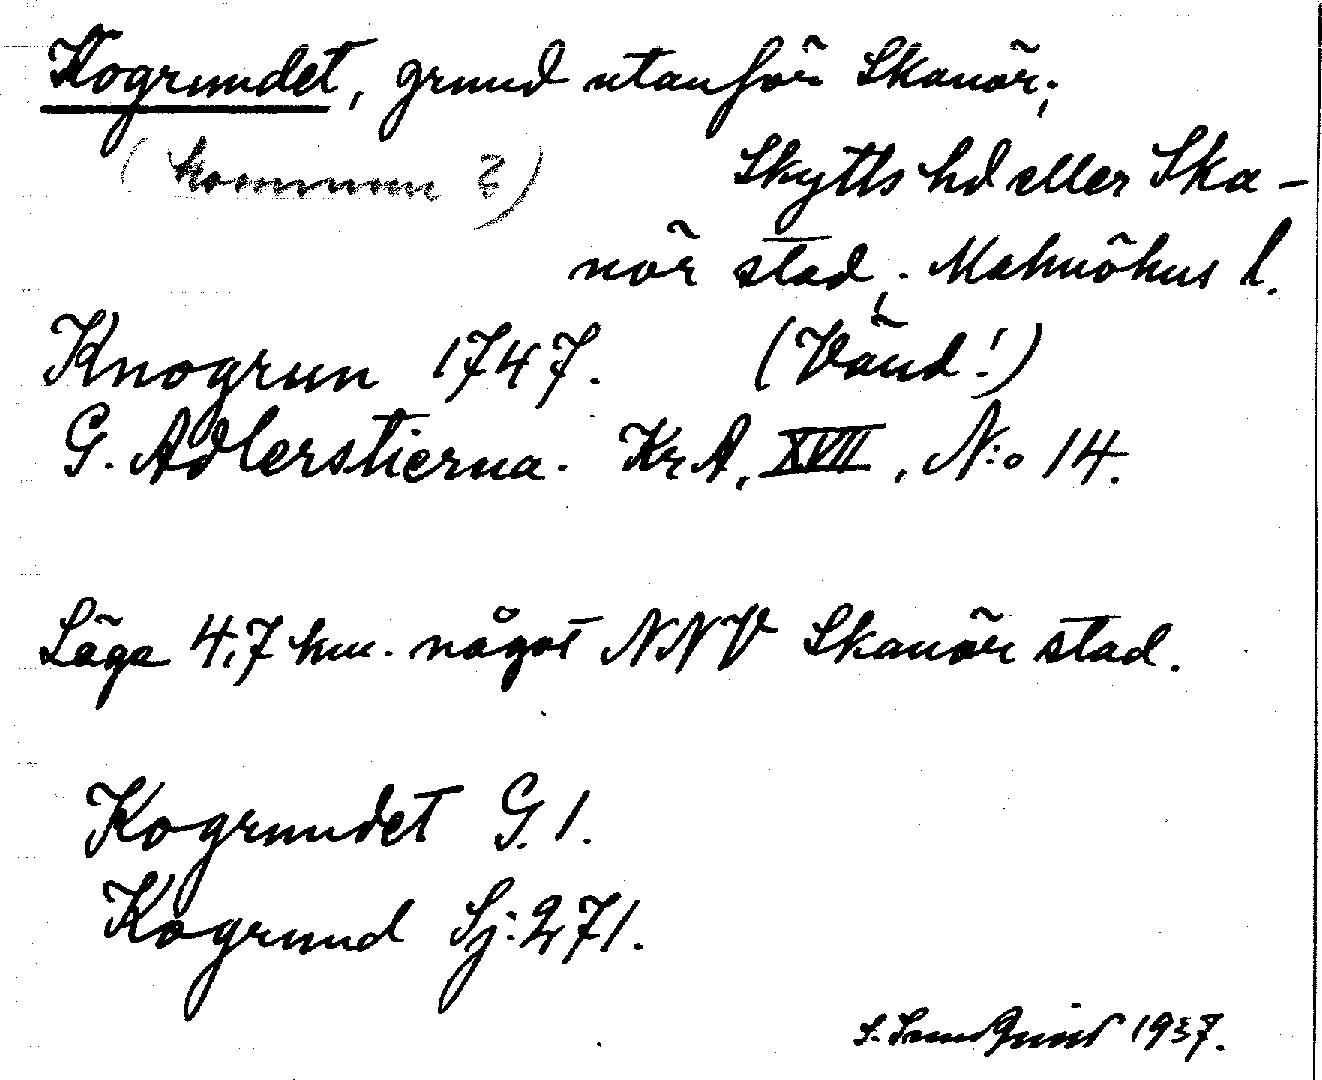 Kogrundet, grund utanför Skanör;
(kommun ?) Skytts hd eller Ska-
nör stad; Malmöhus l.
Knogrun 1747. (Vänd!)
G. Adlerstierna. Kr A, XVII, N:o 14.
Läge 4,7 km. något NNV Skanör stad.
Kogrundet G. 1.
Kogrund Sj: 271.
S. 1937.